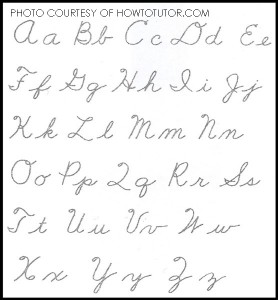 PHOTO COURTESY OF HOWTOTUTOR.COM
Aa Bb Cc Dd Ee
Ff Gg Hh Ii Jj
Kk Ll Mm Nn
Oo Pp Qq Rr Ss
Tt Uu Vv Ww
Xx Yy Zz